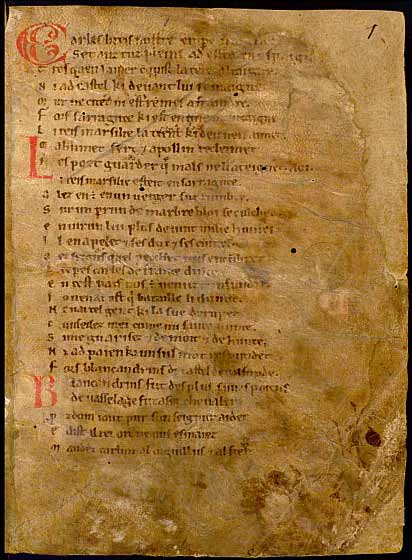 Carles li reis nostre emper
Set anz tuz pleins ad estet en espaigne
Tres quen la mer cunquist la tere altaigne
N i ad castel ki devant lui remaigne
M ur ne citet ni est remes a fraindre
F ors sarraguce ki est en une muntaigne
L i reis marsilie la tient ki deu nen aimet
M ahumet sert e apollin recleimet
N es poet guarder que mals ne li ateignet aoi
Li reis marsilie esteit en sarraguce
A lez en est en un verger suz lumbre
S ur un perrun de marbre bloi se culchet
E nvirun lui plus de vint milie humes
I l en apelet e ses dux e ses cuntes
O ez seignurs quel pecchet nus encumbret
L i emperes carles de france dulce
E n cest pais nos est venuz cunfundre
I o nen ai ost qui bataille li dunne
N ai tel gent ki la sue derumpet
C unseilez mei cume mi saive hume
S i me guarisez e de mort e de hunte
N i ad paien ki un sul mot respundet
F ors blancandrins de castel de valfunde
Blancandrins fut des plus saives paiens
De vasselage fut asez chevaler
P rozdom i out pur sun seignur aider
E dist al rei ore ne vus esmaiez
M andez carlun al orguillus e al fier